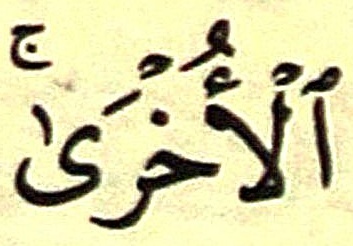 ٱلْأُخْرَىٰ ۚ